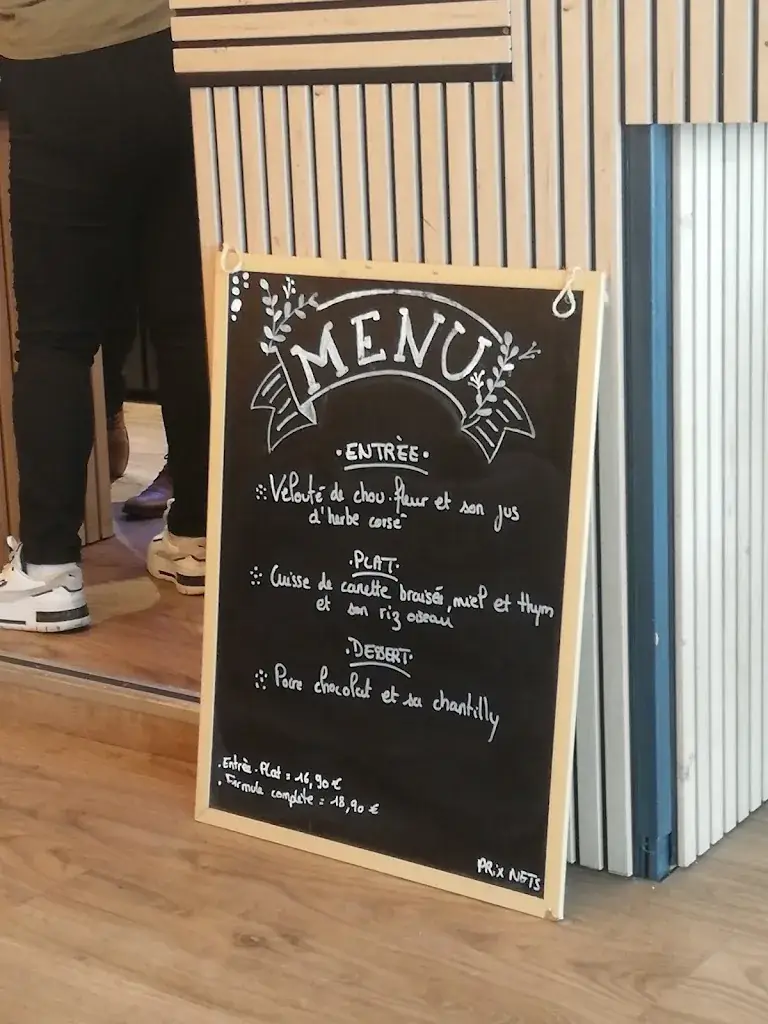 MENU
·ENTRÈE·
Velouté de chou-fleur et son jus
d'herbe corsé
·PLAT·
Cuisse de canette braisée, miel et thym
et son riz oiseau
·DESSERT·
Poire chocolat et sa chantilly
. Entrée. Plat = 16,90 €
. Formule complète = 18,90 €
PRix NETS